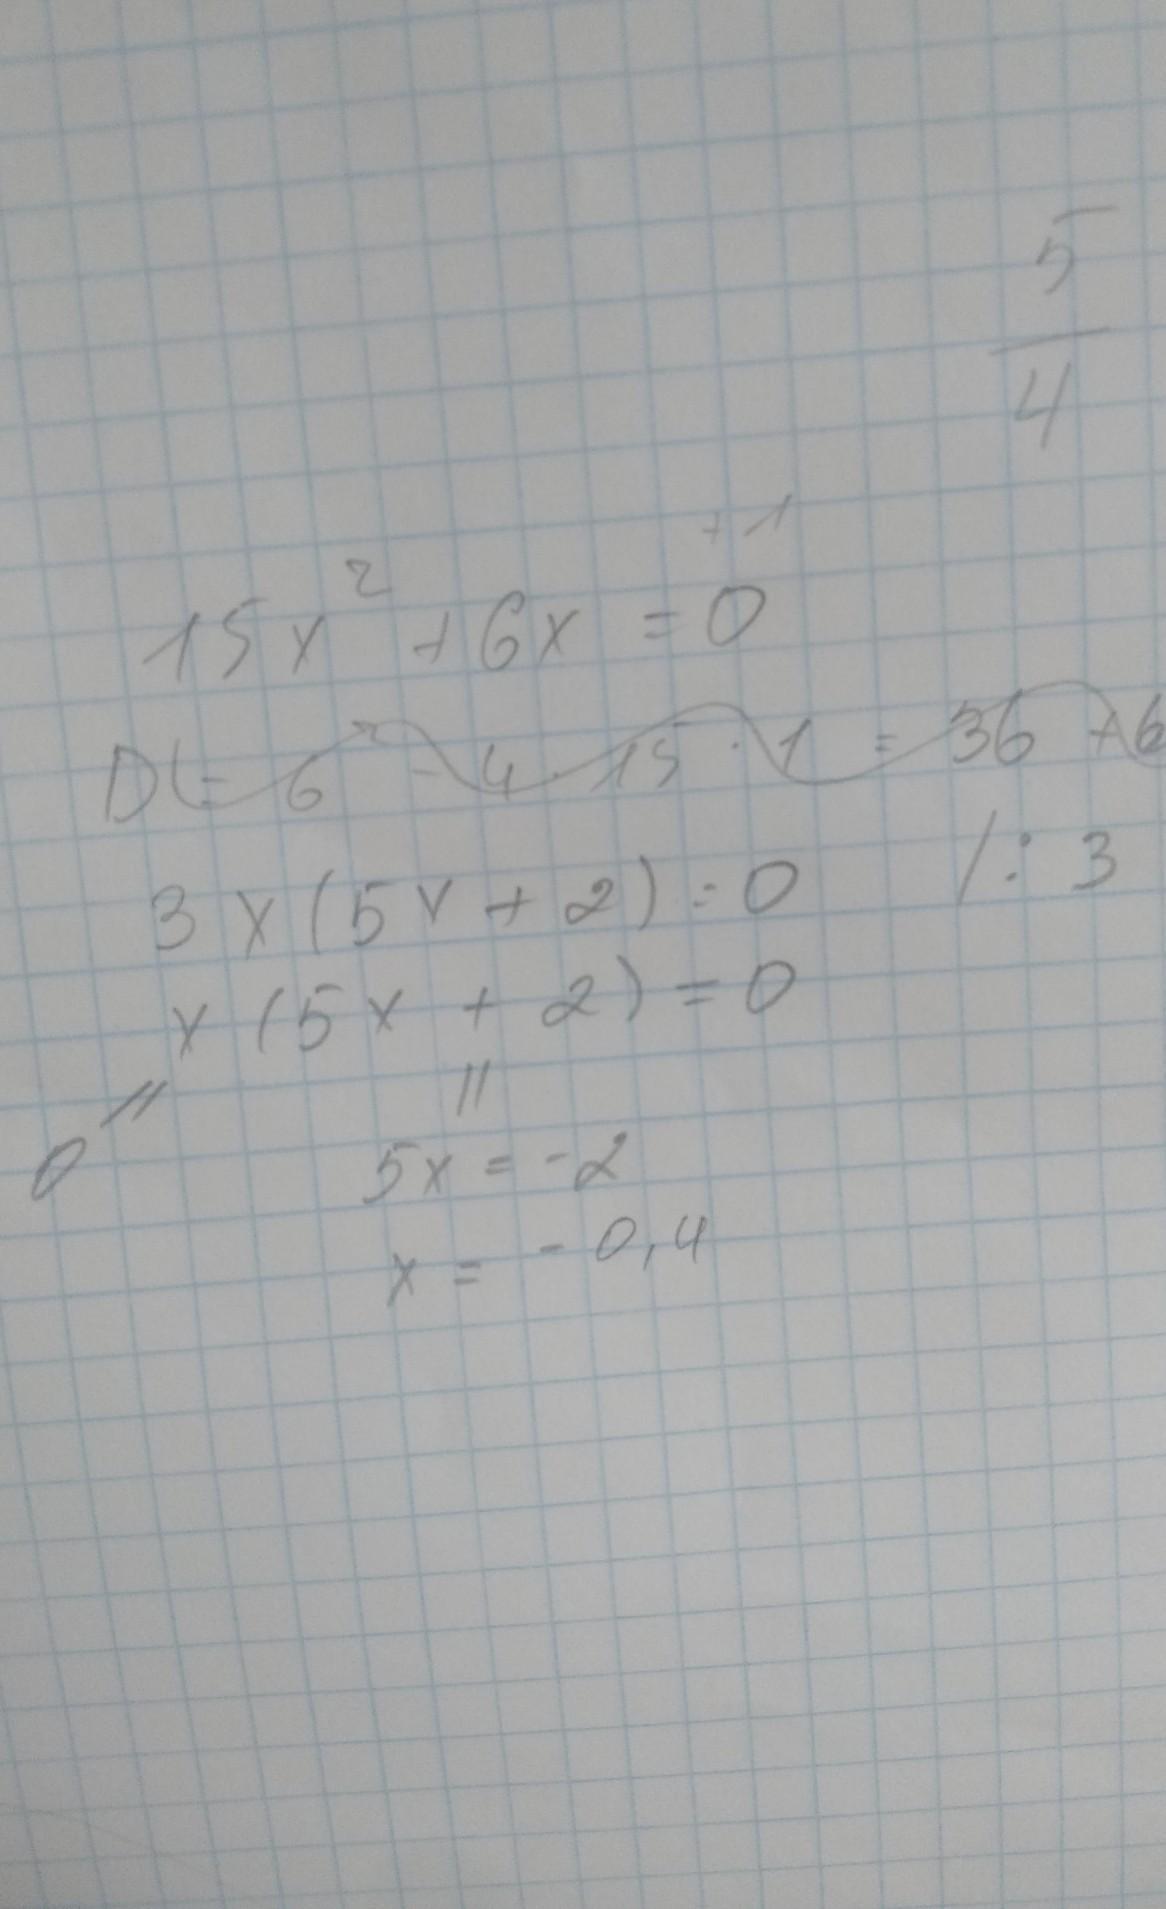 5
4
+1
15x² + 6x = 0
D = 6² - 4 · 15 · 1 = 36 + 6
3x(5x + 2) = 0 /: 3
x(5x + 2) = 0
= =
0 5x = -2
x = -0,4